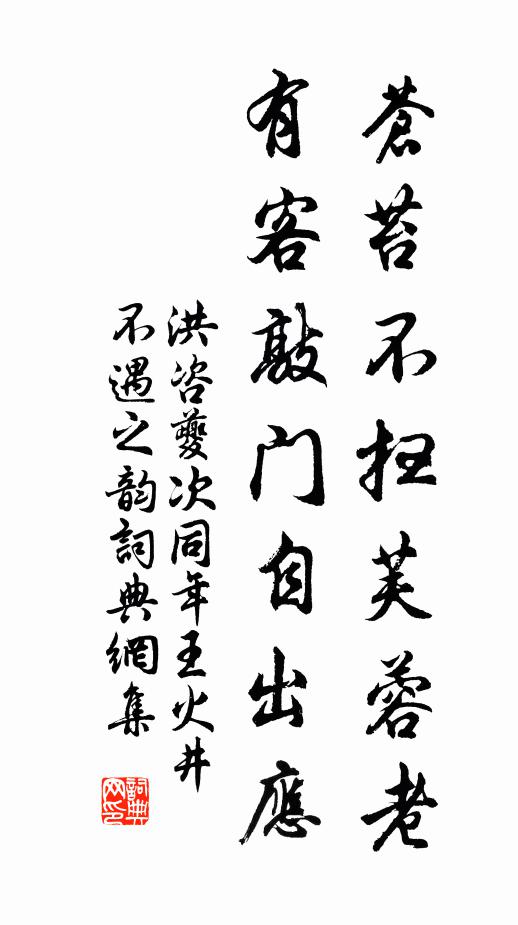 蒼苔不扫芙蓉老
有客敲门自出應
洪咨夔次同年王火井
不遇之韵詞典網集
詞典网印